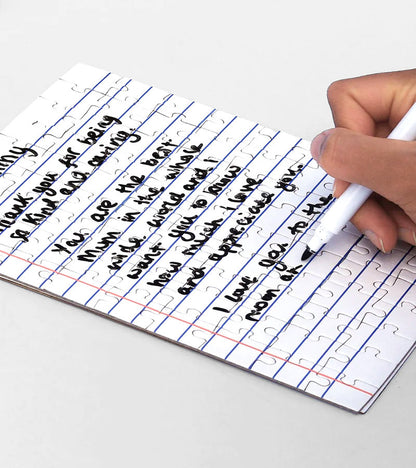 hank you for being
so kind and caring.
You are the best
Mum in the whole
wide world and I
want you to know
how much I love
and appreciated you.
I love you to the
moon an